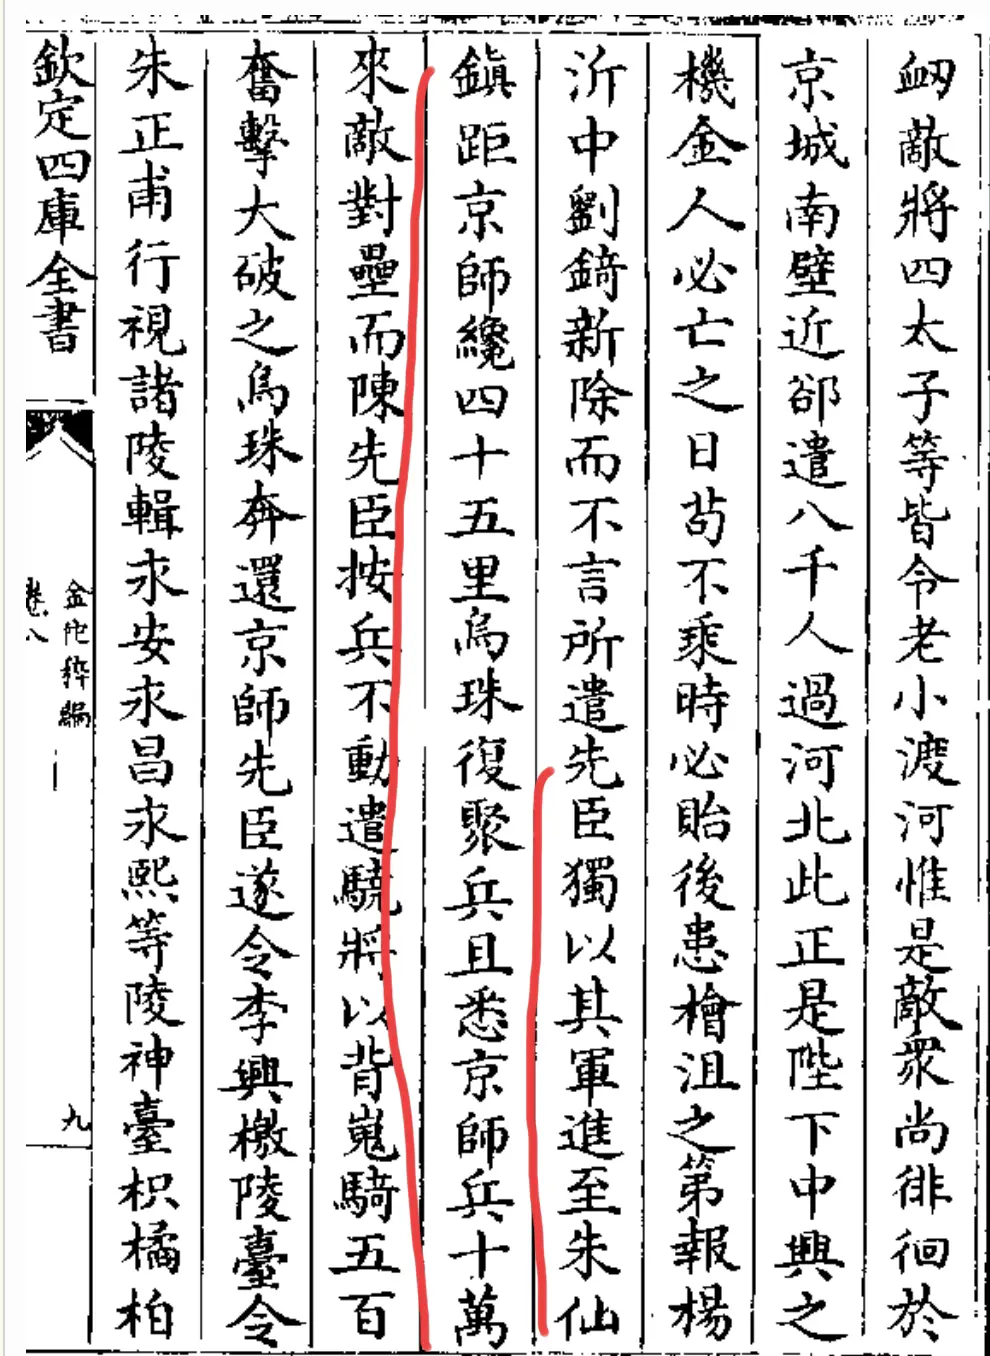 衂敵將四太子等皆令老小渡河惟是敵衆尚徘徊於
京城南壁近郤遣八千人過河北此正是陛下中興之
機金人必亡之日茍不乘時必貽後患檜沮之第報楊
沂中劉錡新除而不言所遣先臣獨以其軍進至朱仙
鎮距京師纔四十五里烏珠復聚兵且悉京師兵十萬
來敵對壘而陳先臣按兵不動遣驍將以背嵬騎五百
奮擊大破之烏珠奔還京師先臣遂令李興檄陵臺令
朱正甫行視諸陵輯永安永昌永熙等陵神臺枳橘柏
欽定四庫全書
金佗稡編
卷八
九